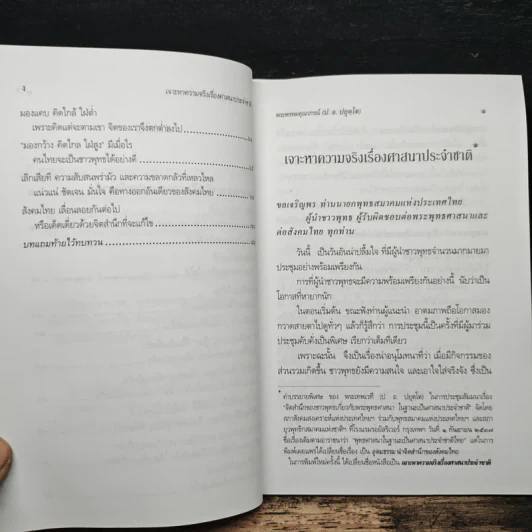 เจาะหาความจริงเรื่องศาสนาประจำชาติ
มองแคบ คิดใกล้ ใฝ่ต่ำ
เพราะคิดแต่จะตามเขา จิตของเราจึงตกต่ำลงไป
"มองกว้าง คิดไกล ใฝ่สูง" มีเมื่อไร
คนไทยจะเป็นชาวพุทธได้อย่างดี
เลิกเสียที ความสับสนพร่ามัว และความขลาดกลัวที่เหลวไหล
แน่วแน่ ชัดเจน มั่นใจ คือทางออกอันเดียวของสังคมไทย
สังคมไทย เลื่อนลอยกันต่อไป
หรือเด็ดเดี่ยวด้วยจิตสำนึกที่จะแก้ไข
บทแถมท้ายไว้ทบทวน
พระพรหมคุณาภรณ์ (ป. อ. ปยุตฺโต) ๑
เจาะหาความจริงเรื่องศาสนาประจำชาติ*
ขอเจริญพร ท่านนายกพุทธสมาคมแห่งประเทศไทย
ผู้นำชาวพุทธ ผู้รับผิดชอบต่อพระพุทธศาสนาและ
ต่อสังคมไทย ทุกท่าน
วันนี้ เป็นวันอันน่าปลื้มใจ ที่มีผู้นำชาวพุทธจำนวนมากมายมา
ประชุมอย่างพร้อมเพรียงกัน
การที่ผู้นำชาวพุทธจะมีความพร้อมเพรียงกันอย่างนี้ นับว่าเป็น
โอกาสที่หายากนัก
ในตอนเริ่มต้น ขณะฟังท่านผู้แนะนำ อาตมภาพถือโอกาสมอง
กวาดสายตาไปดูทั่วๆ แล้วก็รู้สึกว่า การประชุมนี้เป็นครั้งที่มีผู้มาร่วม
ประชุมคับคั่งเป็นพิเศษ เรียกว่าเต็มที่เดียว
เพราะฉะนั้น จึงเป็นเรื่องน่าอนุโมทนาที่ว่า เมื่อมีกิจกรรมของ
ส่วนรวมเกิดขึ้น ชาวพุทธยังมีความสนใจ และเอาใจใส่จริงจัง ซึ่งเป็น
* คำบรรยายพิเศษ ของ พระเทพเวที (ป. อ. ปยุตฺโต) ในการประชุมสัมมนาเรื่อง
"จิตสำนึกของชาวพุทธเกี่ยวกับพระพุทธศาสนา ในฐานะเป็นศาสนาประจำชาติ" จัดโดย
สภาสังคมสงเคราะห์แห่งประเทศไทยฯ ร่วมกับพุทธสมาคมแห่งประเทศไทยฯ และสภา
ยุวพุทธิกสมาคมแห่งชาติฯ ที่โรงแรมรอยัลริเวอร์ กรุงเทพฯ วันที่ ๑ กันยายน ๒๕๓๗
ชื่อเรื่องเดิมตามอาราธนาว่า "พุทธศาสนาในฐานะเป็นศาสนาประจำชาติไทย" แต่ในการ
พิมพ์เผยแพร่ได้เปลี่ยนชื่อเรื่อง เป็น อุดมธรรม นำจิตสำนึกของสังคมไทย
ในการพิมพ์ใหม่ครั้งนี้ ได้เปลี่ยนชื่อหนังสือเป็น เจาะหาความจริงเรื่องศาสนาประจำชาติ